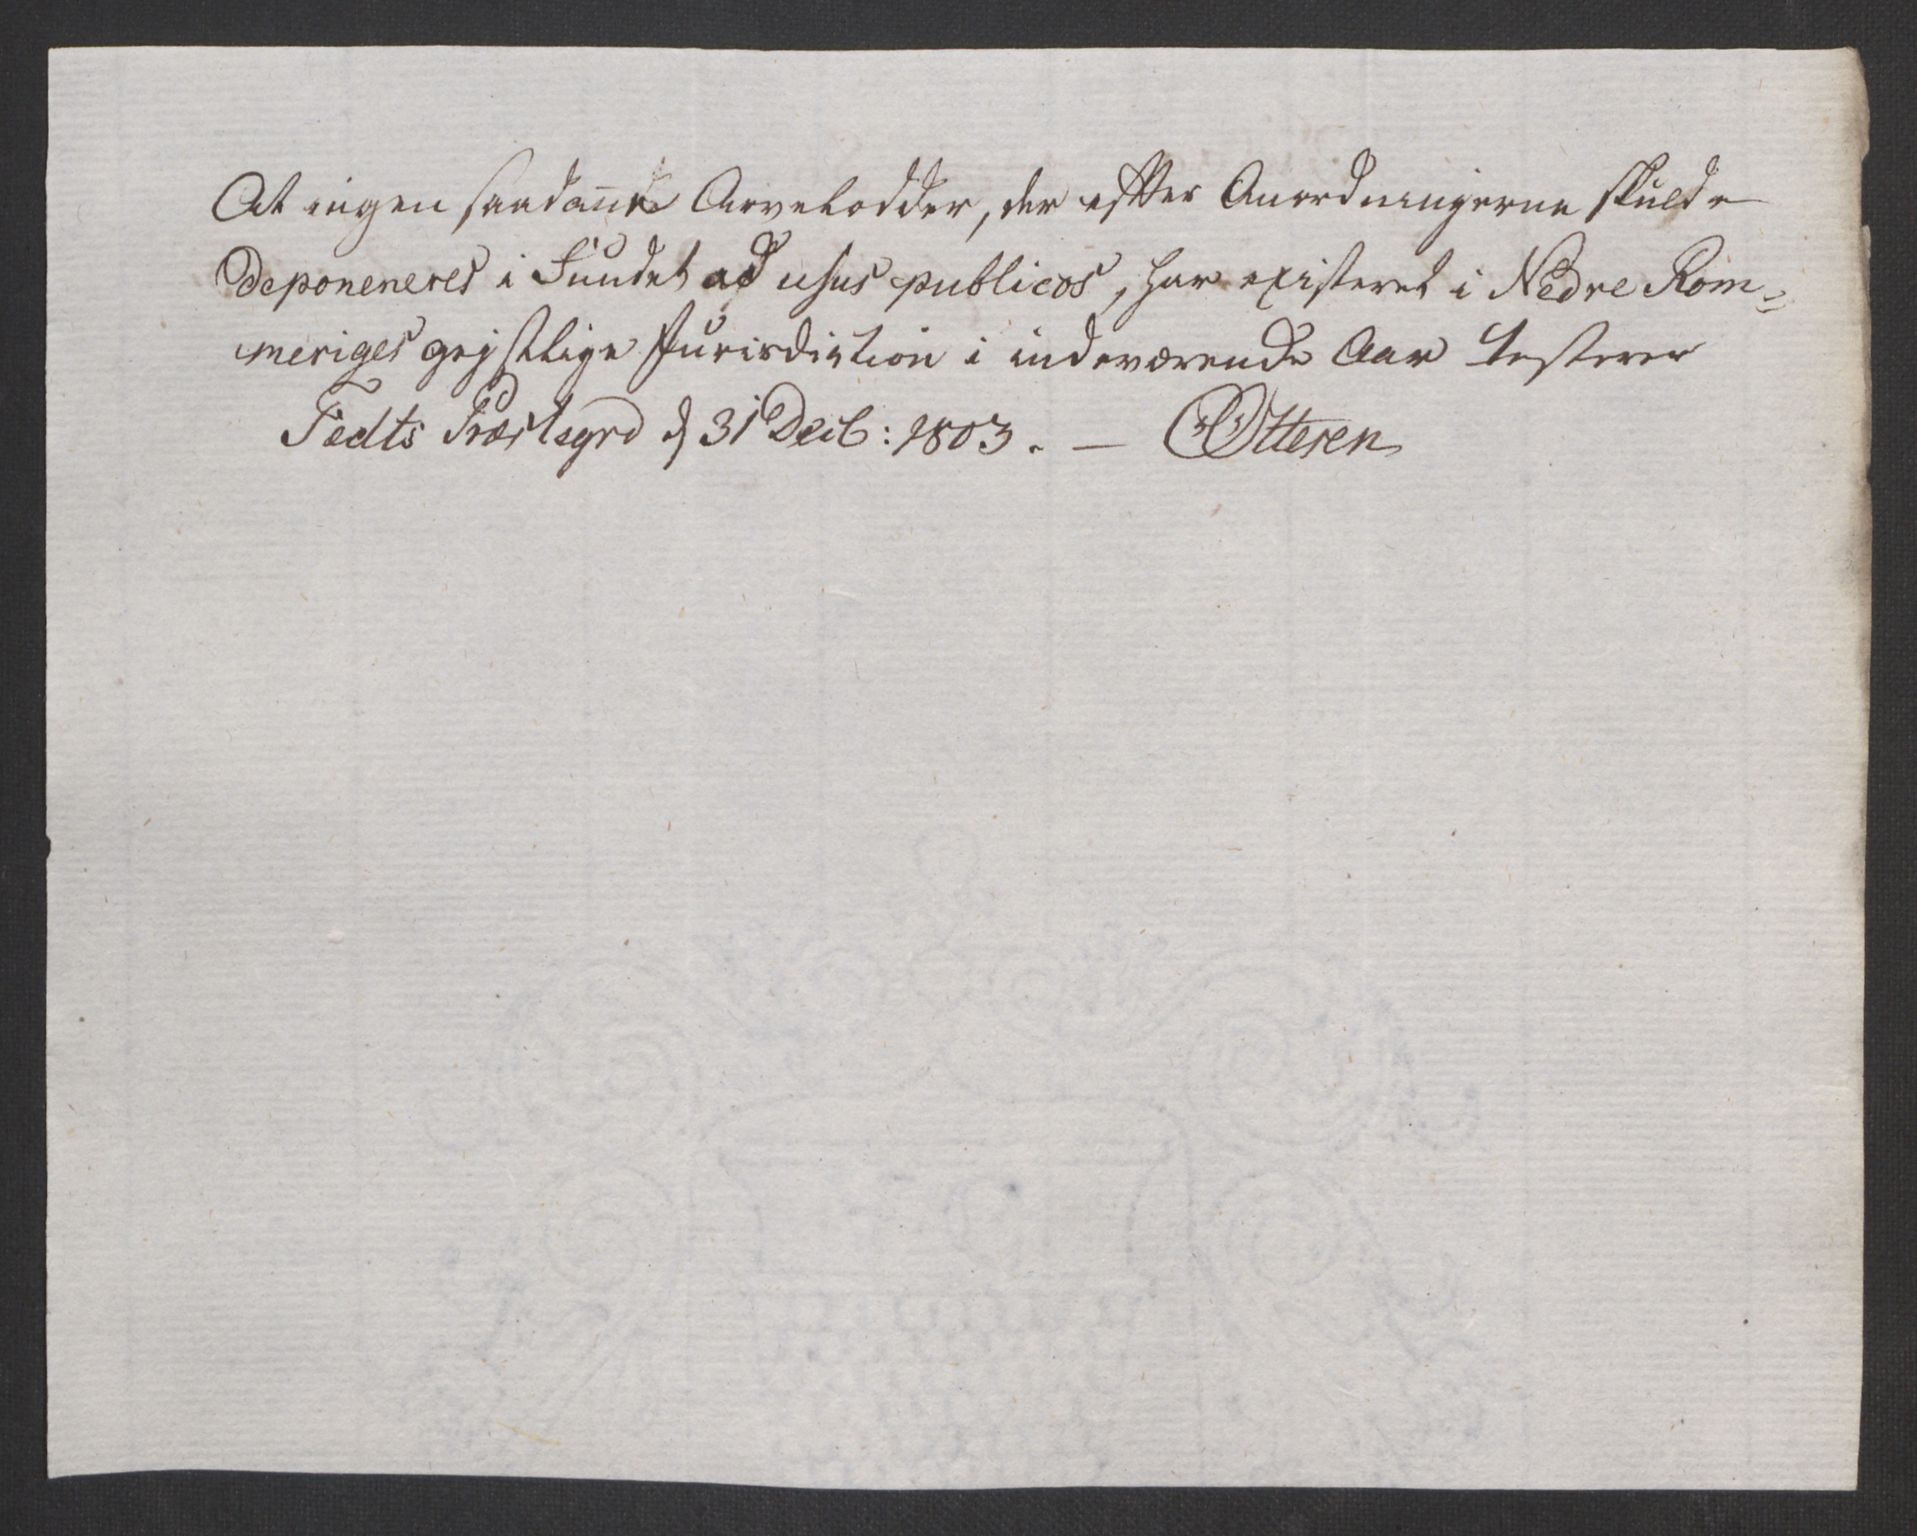 At ingen saadanne Arvelodder, der efter Anordningerne skulde
deponeneres i Fundet ad usus publicos, har existeret i Nedre Rom-
meriges geystlige Jurisdiction i indeværende Aar testerer
Fedts Præstegrd d 31 Decb: 1803. — Ottesen